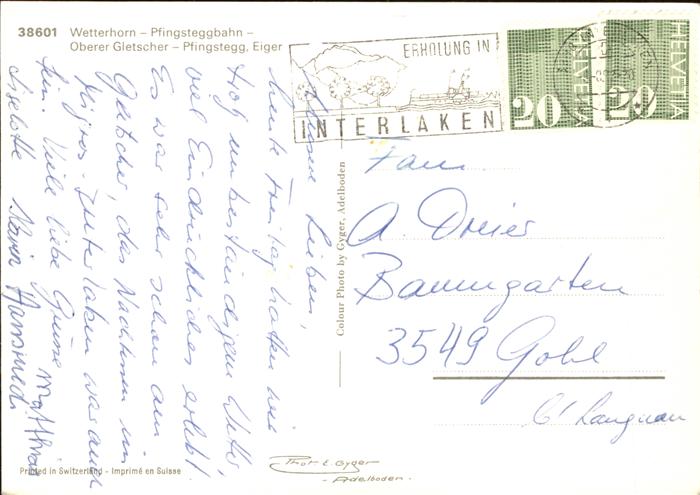 38601 Wetterhorn – Pfingsteggbahn –
Oberer Gletscher – Pfingstegg, Eiger
ERHOLUNG IN
INTERLAKEN
20 HELVETIA
20 HELVETIA
Meine Lieben,
heute Freitag hatten wir
trotz unbeständigem Wetter,
viel Eindrückliches erlebt.
Es war sehr schön am
Gletscher, das Nachtessen im
Migros-Interlaken war auch
fein. Viele liebe Grüsse
Liselotte Hansruedi
Matthias
Colour Photo by Gyger, Adelboden
Fam.
A. Dreier
Baumgarten
3549 Gohl
b/ Langnau
Printed in Switzerland - Imprimé en Suisse
Phot E. Gyger
- Adelboden -